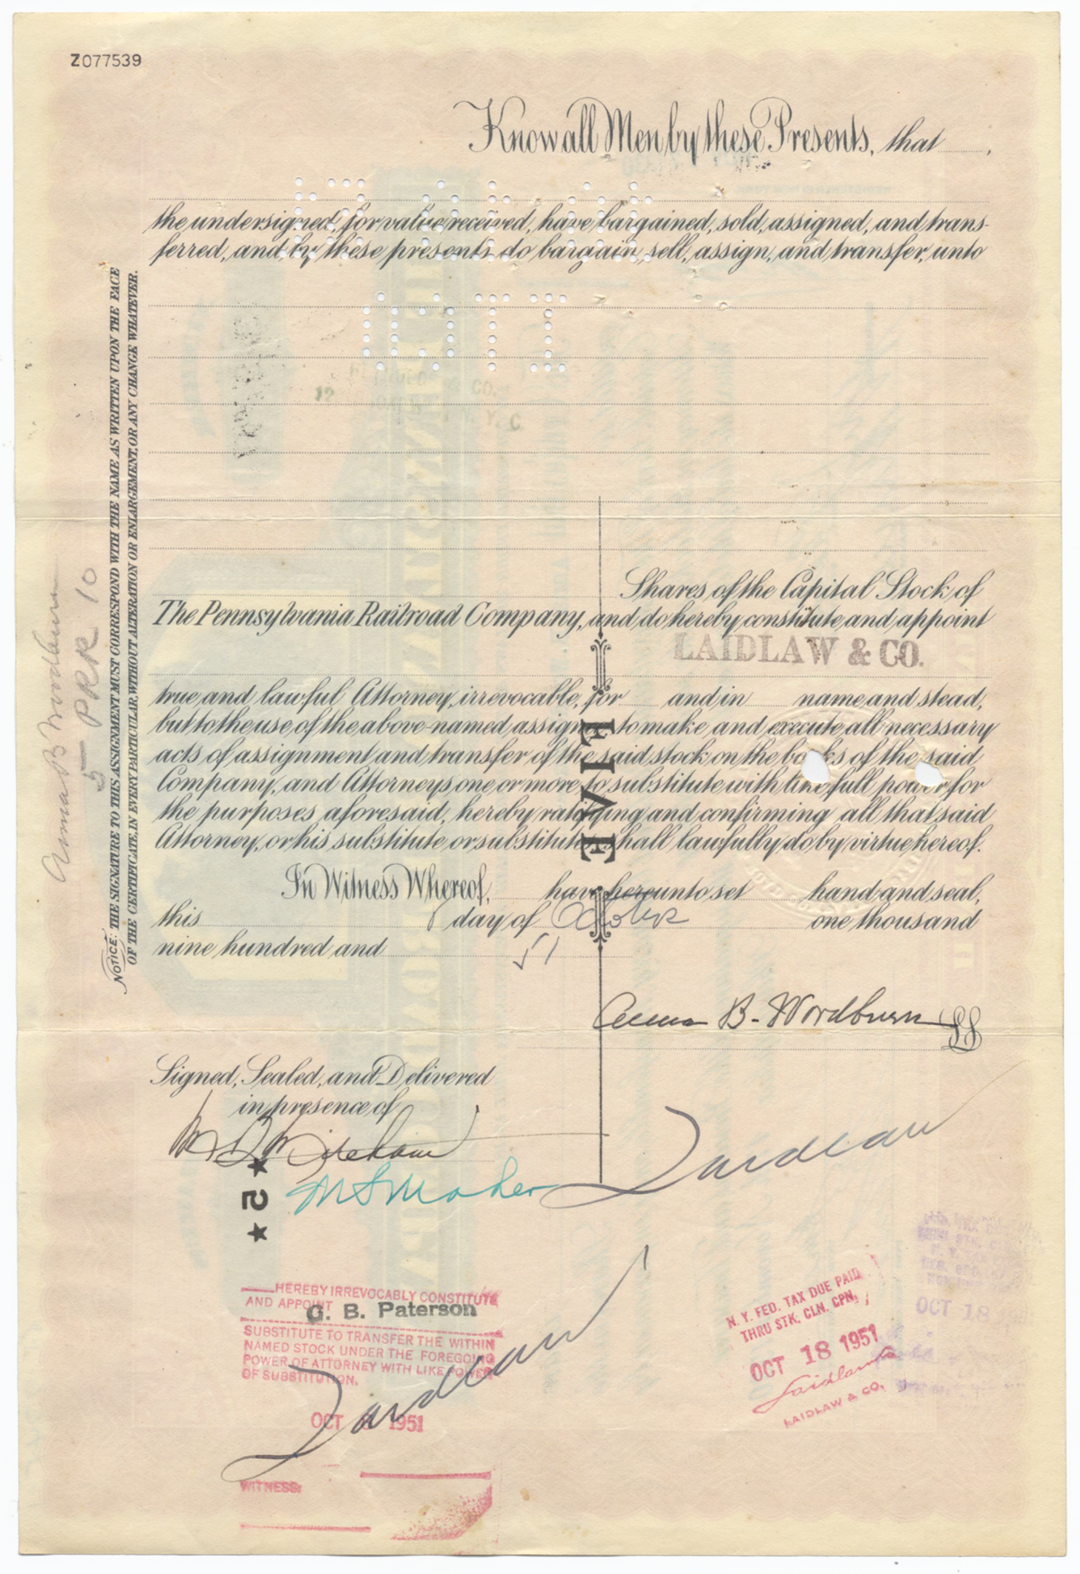 Z077539
Know all Men by these Presents, that
the undersigned, for value received, have bargained, sold, assigned, and trans-
ferred, and by these presents do bargain, sell, assign, and transfer, unto
Shares of the Capital Stock of
The Pennsylvania Railroad Company, and do hereby constitute and appoint
LAIDLAW & CO.
true and lawful Attorney, irrevocable, for and in name and stead,
but to the use of the above-named assign to make and execute all necessary
acts of assignment and transfer of the said stock on the books of the said
Company, and Attorneys one or more to substitute with like full power, for
the purposes aforesaid, hereby ratifying and confirming all that said
Attorney, or his substitute or substitutes, shall lawfully do by virtue hereof.
In Witness Whereof, have hereunto set hand and seal,
this day of October one thousand
nine hundred and 51
Anna B. Woodburn LS
Signed, Sealed, and Delivered
in presence of
M S Maher
Laidlaw
★ 5 ★
FIVE
HEREBY IRREVOCABLY CONSTITUTE
AND APPOINT
G. B. Paterson
SUBSTITUTE TO TRANSFER THE WITHIN
NAMED STOCK UNDER THE FOREGOING
POWER OF ATTORNEY WITH LIKE POWER
OF SUBSTITUTION.
OCT 1951
Laidlaw
WITNESS:
N. Y. FED. TAX DUE PAID
THRU STK. CLN. CPN.
OCT 18 1951
Laidlaw
LAIDLAW & CO.
OCT 18
NOTICE: THE SIGNATURE TO THIS ASSIGNMENT MUST CORRESPOND WITH THE NAME AS WRITTEN UPON THE FACE
OF THE CERTIFICATE, IN EVERY PARTICULAR, WITHOUT ALTERATION OR ENLARGEMENT, OR ANY CHANGE WHATEVER.
Anna B Woodburn
5 PRR 10